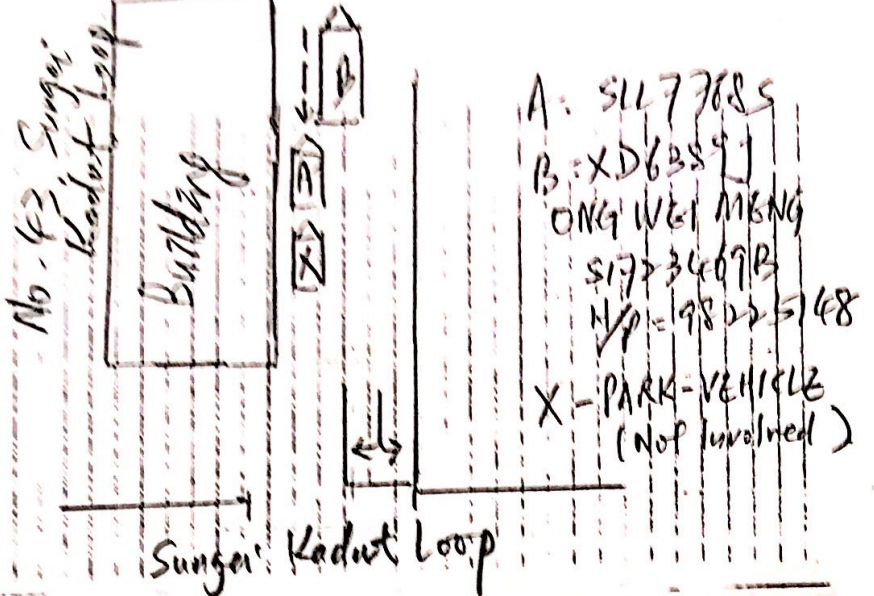 No. 43 Sungei
Kadut Loop
Building
B
A
X
A: SLL7768S
B: XD6389J
ONG WEI MENG
S1723469B
H/P = 98225148
X - PARK-VEHICLE
(Not Involved)
Sungei Kadut Loop